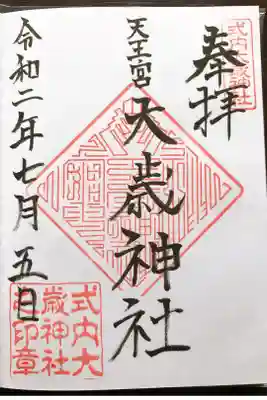 式内大歳神社
奉拝
天王宮 大歳神社
令和二年七月五日
式内大
歳神社
之印章